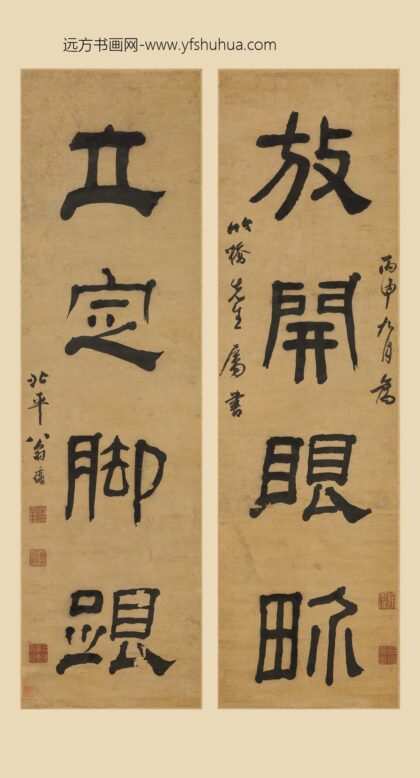 远方书画网-www.yfshuhua.com
丙申九月為
放開眼畍
先生屬書
立定脚跟
北平翁